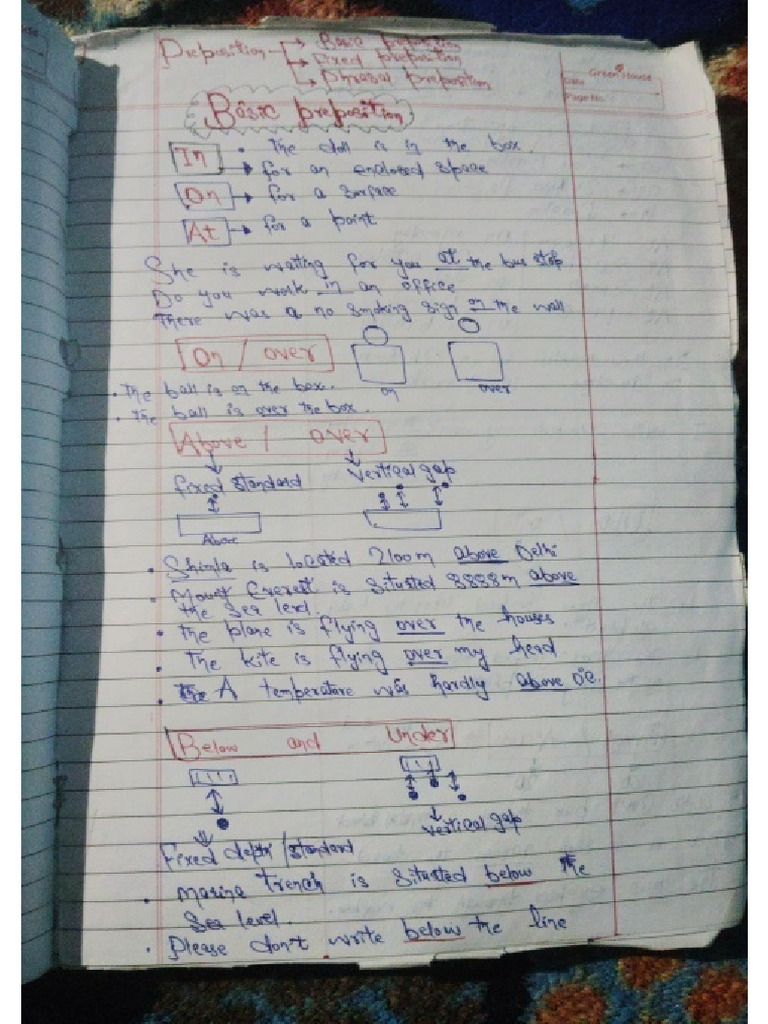 Preposition → Basic preposition
→ Fixed preposition
→ Phrasal preposition
Green House
Date
Page No.
Basic preposition
In • The doll is in the box.
→ for an enclosed space
On → for a surface
At → for a point
She is waiting for you at the bus stop
Do you work in an office
There was a no smoking sign on the wall
On / over
on over
• The ball is on the box.
• The ball is over the box.
Above / over
fixed standard vertical gap
Above
• Shimla is located 2100m above Delhi
• Mount Everest is situated 8888m above
the sea level.
• The plane is flying over the houses
• The kite is flying over my head
• The A temperature was hardly above 0°c.
Below and Under
vertical gap
Fixed depth / standard
• Marina trench is situated below the
sea level.
• Please don't write below the line